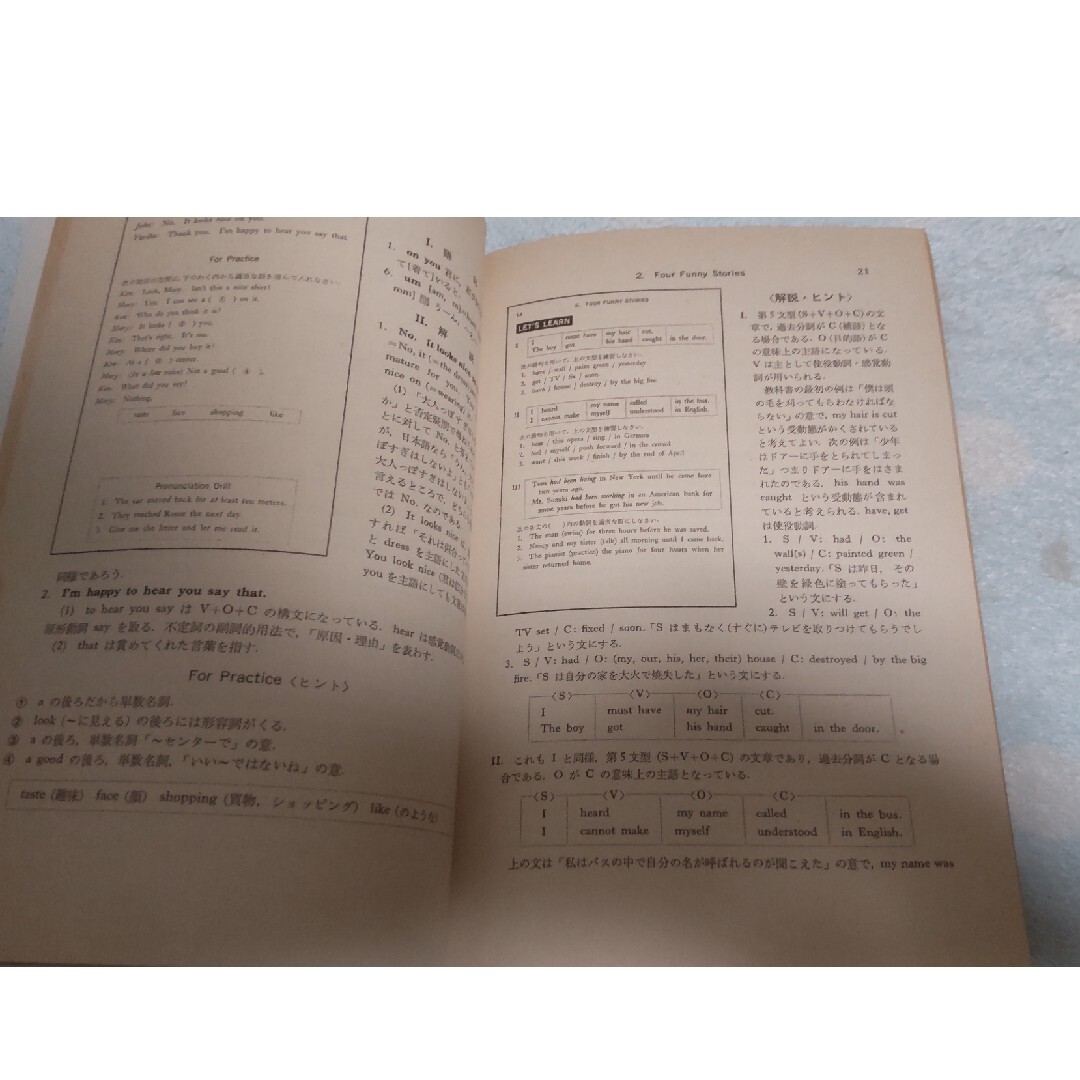 John: No. It looks nice on you.
Yuriko: Thank you. I'm happy to hear you say that.
For Practice
Ken: Look, Mary. Isn't this a nice
Mary: Yes. I can see a ( ) on it.
Ken: Who do you think it is?
Mary: It looks ( ) you.
Ken: That's right. It's me.
Mary: Where did you buy it?
Ken: At a ( ) center.
Mary: Not a good ( ).
Ken: What did you say?
Mary: Nothing.
taste face shopping like
Pronunciation Drill
1. The car moved back for at least ten meters.
2. They reached Rome the next day.
3. Give me the letter and let me read it.
同様であろう.
2. I'm happy to hear you say that.
(1) to hear you say は V+O+C の構文になっている. hear は感覚動詞
原形動詞 say を取る. 不定詞の副詞的用法で,「原因・理由」を表わす.
(2) that は賞めてくれた言葉を指す.
For Practice〈ヒント〉
① a の後ろだから単数名詞.
② look (〜に見える) の後ろには形容詞がくる.
③ a の後ろ, 単数名詞「〜センターで」の意.
④ a good の後ろ, 単数名詞,「いい〜ではないね」の意.
taste (趣味) face (顔) shopping (買物, ショッピング) like (のような)
II. 解
1. No. It looks nice
mature for you
nice on (=wearing)
(1)「大人っぽす
大人っぽすぎはしない
では No. なのである.
(2) It looks nice
と dress を主語にした
You look nice
you を主語にしても
2. Four Funny Stories 23
14 2. FOUR FUNNY STORIES
LET'S LEARN
I I must have my hair cut.
The boy got his hand caught in the door.
次の語句を用いて, 上の文型を練習しなさい.
1. have / wall / paint green / yesterday
2. get / TV / fix / soon
3. have / house / destroy / by the big fire
II I heard my name called in the bus.
I cannot make myself understood in English.
次の語句を用いて, 上の文型を練習しなさい.
1. hear / this opera / sing / in German
2. feel / myself / push forward / in the crowd
3. want / this work / finish / by the end of April
III Tom had been living in New York until he came here
two years ago.
Mr. Suzuki had been working in an American bank for
most years before he got his new job.
次の各文の( )内の動詞を適当な形にしなさい.
1. The man (swim) for three hours before he was saved.
2. Nancy and my sister (talk) all morning until I came back.
3. The pianist (practice) the piano for four hours when her
sister returned home.
〈解説・ヒント〉
I. 第5文型(S+V+O+C)の文
章で, 過去分詞が C(補語)とな
る場合である. O(目的語)が C
の意味上の主語になっている.
V は主として使役動詞・感覚動
詞が用いられる.
教科書の最初の例は「僕は頭
の毛を刈ってもらわなければな
らない」の意で, my hair is cut
という受動態がかくされている
と考えてよい. 次の例は「少年
はドアーに手をとられてしまっ
た」つまりドアーに手をはさま
れたのである. his hand was
caught という受動態が含まれ
ていると考えられる. have, get
は使役動詞.
1. S / V: had / O: the
wall(s) / C: painted green /
yesterday.「S は昨日, その
壁を緑色に塗ってもらった」
という文にする.
2. S / V: will get / O: the
TV set / C: fixed / soon.「S はまもなく(すぐに)テレビを取りつけてもらうでし
ょう」という文にする.
3. S / V: had / O: (my, our, his, her, their) house / C: destroyed / by the big
fire.「S は自分の家を大火で焼失した」という文にする.
〈S〉 〈V〉 〈O〉 〈C〉
I must have my hair cut.
The boy got his hand caught in the door.
II. これも I と同様, 第5文型 (S+V+O+C) の文章であり, 過去分詞が C となる場
合である. O が C の意味上の主語となっている.
〈S〉 〈V〉 〈O〉 〈C〉
I heard my name called in the bus.
I cannot make myself understood in English.
上の文は「私はバスの中で自分の名が呼ばれるのが聞こえた」の意で, my name was